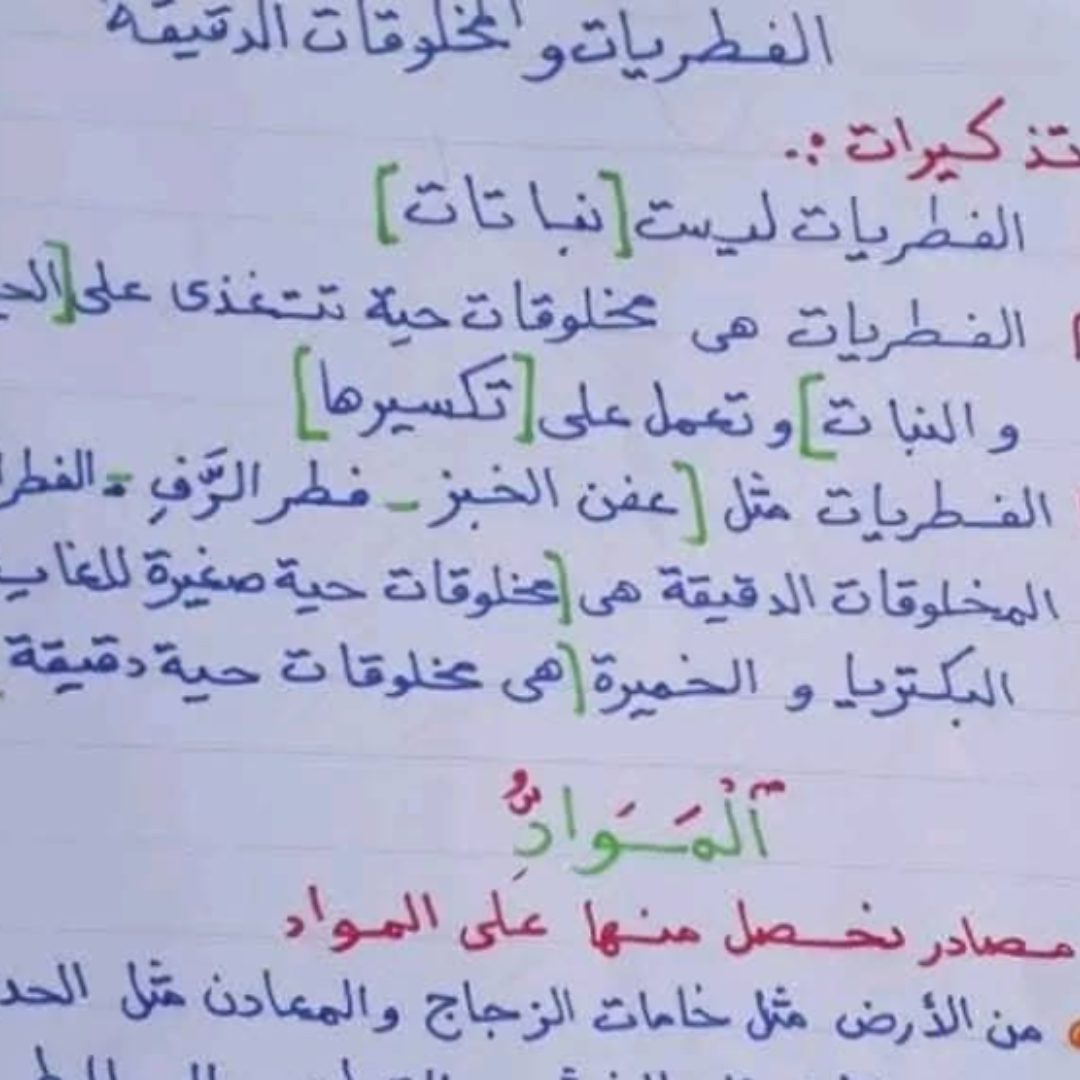 الفطريات و المخلوقات الدقيقة
تذكيرات :.
الفطريات ليست [نباتات]
الفطريات هى مخلوقات حية تتغذى على [
و النبات] و تعمل على [تكسيرها]
الفطريات مثل [عفن الخبز - فطر الرَّفِ =
المخلوقات الدقيقة هى [مخلوقات حية صغيرة
البكتريا و الخميرة [هى مخلوقات حية دقيقة
اَلْمَـوَادُّ
مصادر نحصل منها على المواد
من الأرض مثل خامات الزجاج والمعادن مثل